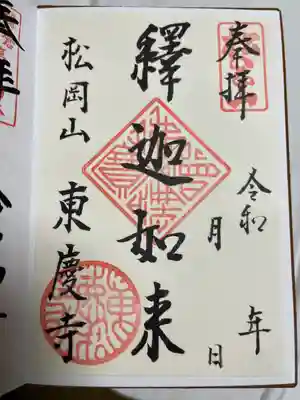 奉拝
令和 年 月 日
釋迦如来
松岡山 東慶寺